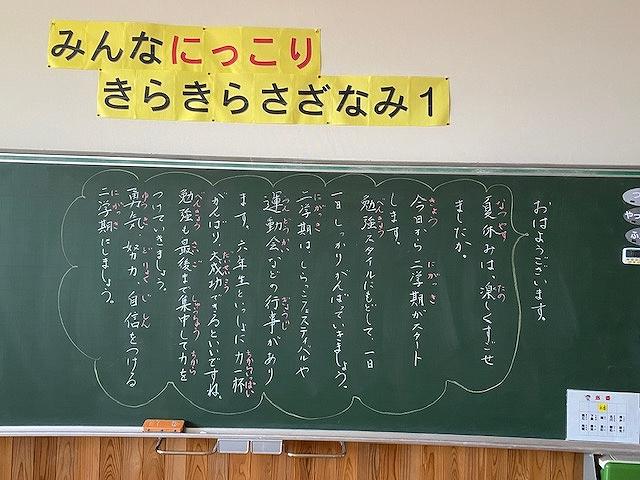 みんなにっこり
きらきらさざなみ１
おはようございます。
夏休みは、楽しくすごせ
ましたか。
今日から二学期がスタート
します。
勉強スタイルにもどして、一日
一日しっかりがんばっていきましょう。
二学期は しらっこフェスティバルや
運動会などの行事があり
ます。六年生といっしょに力一杯
がんばり 大成功できるといいですね。
勉強も最後まで集中して力を
つけていきましょう。
勇気、努力、自信をつける
二学期にしましょう。